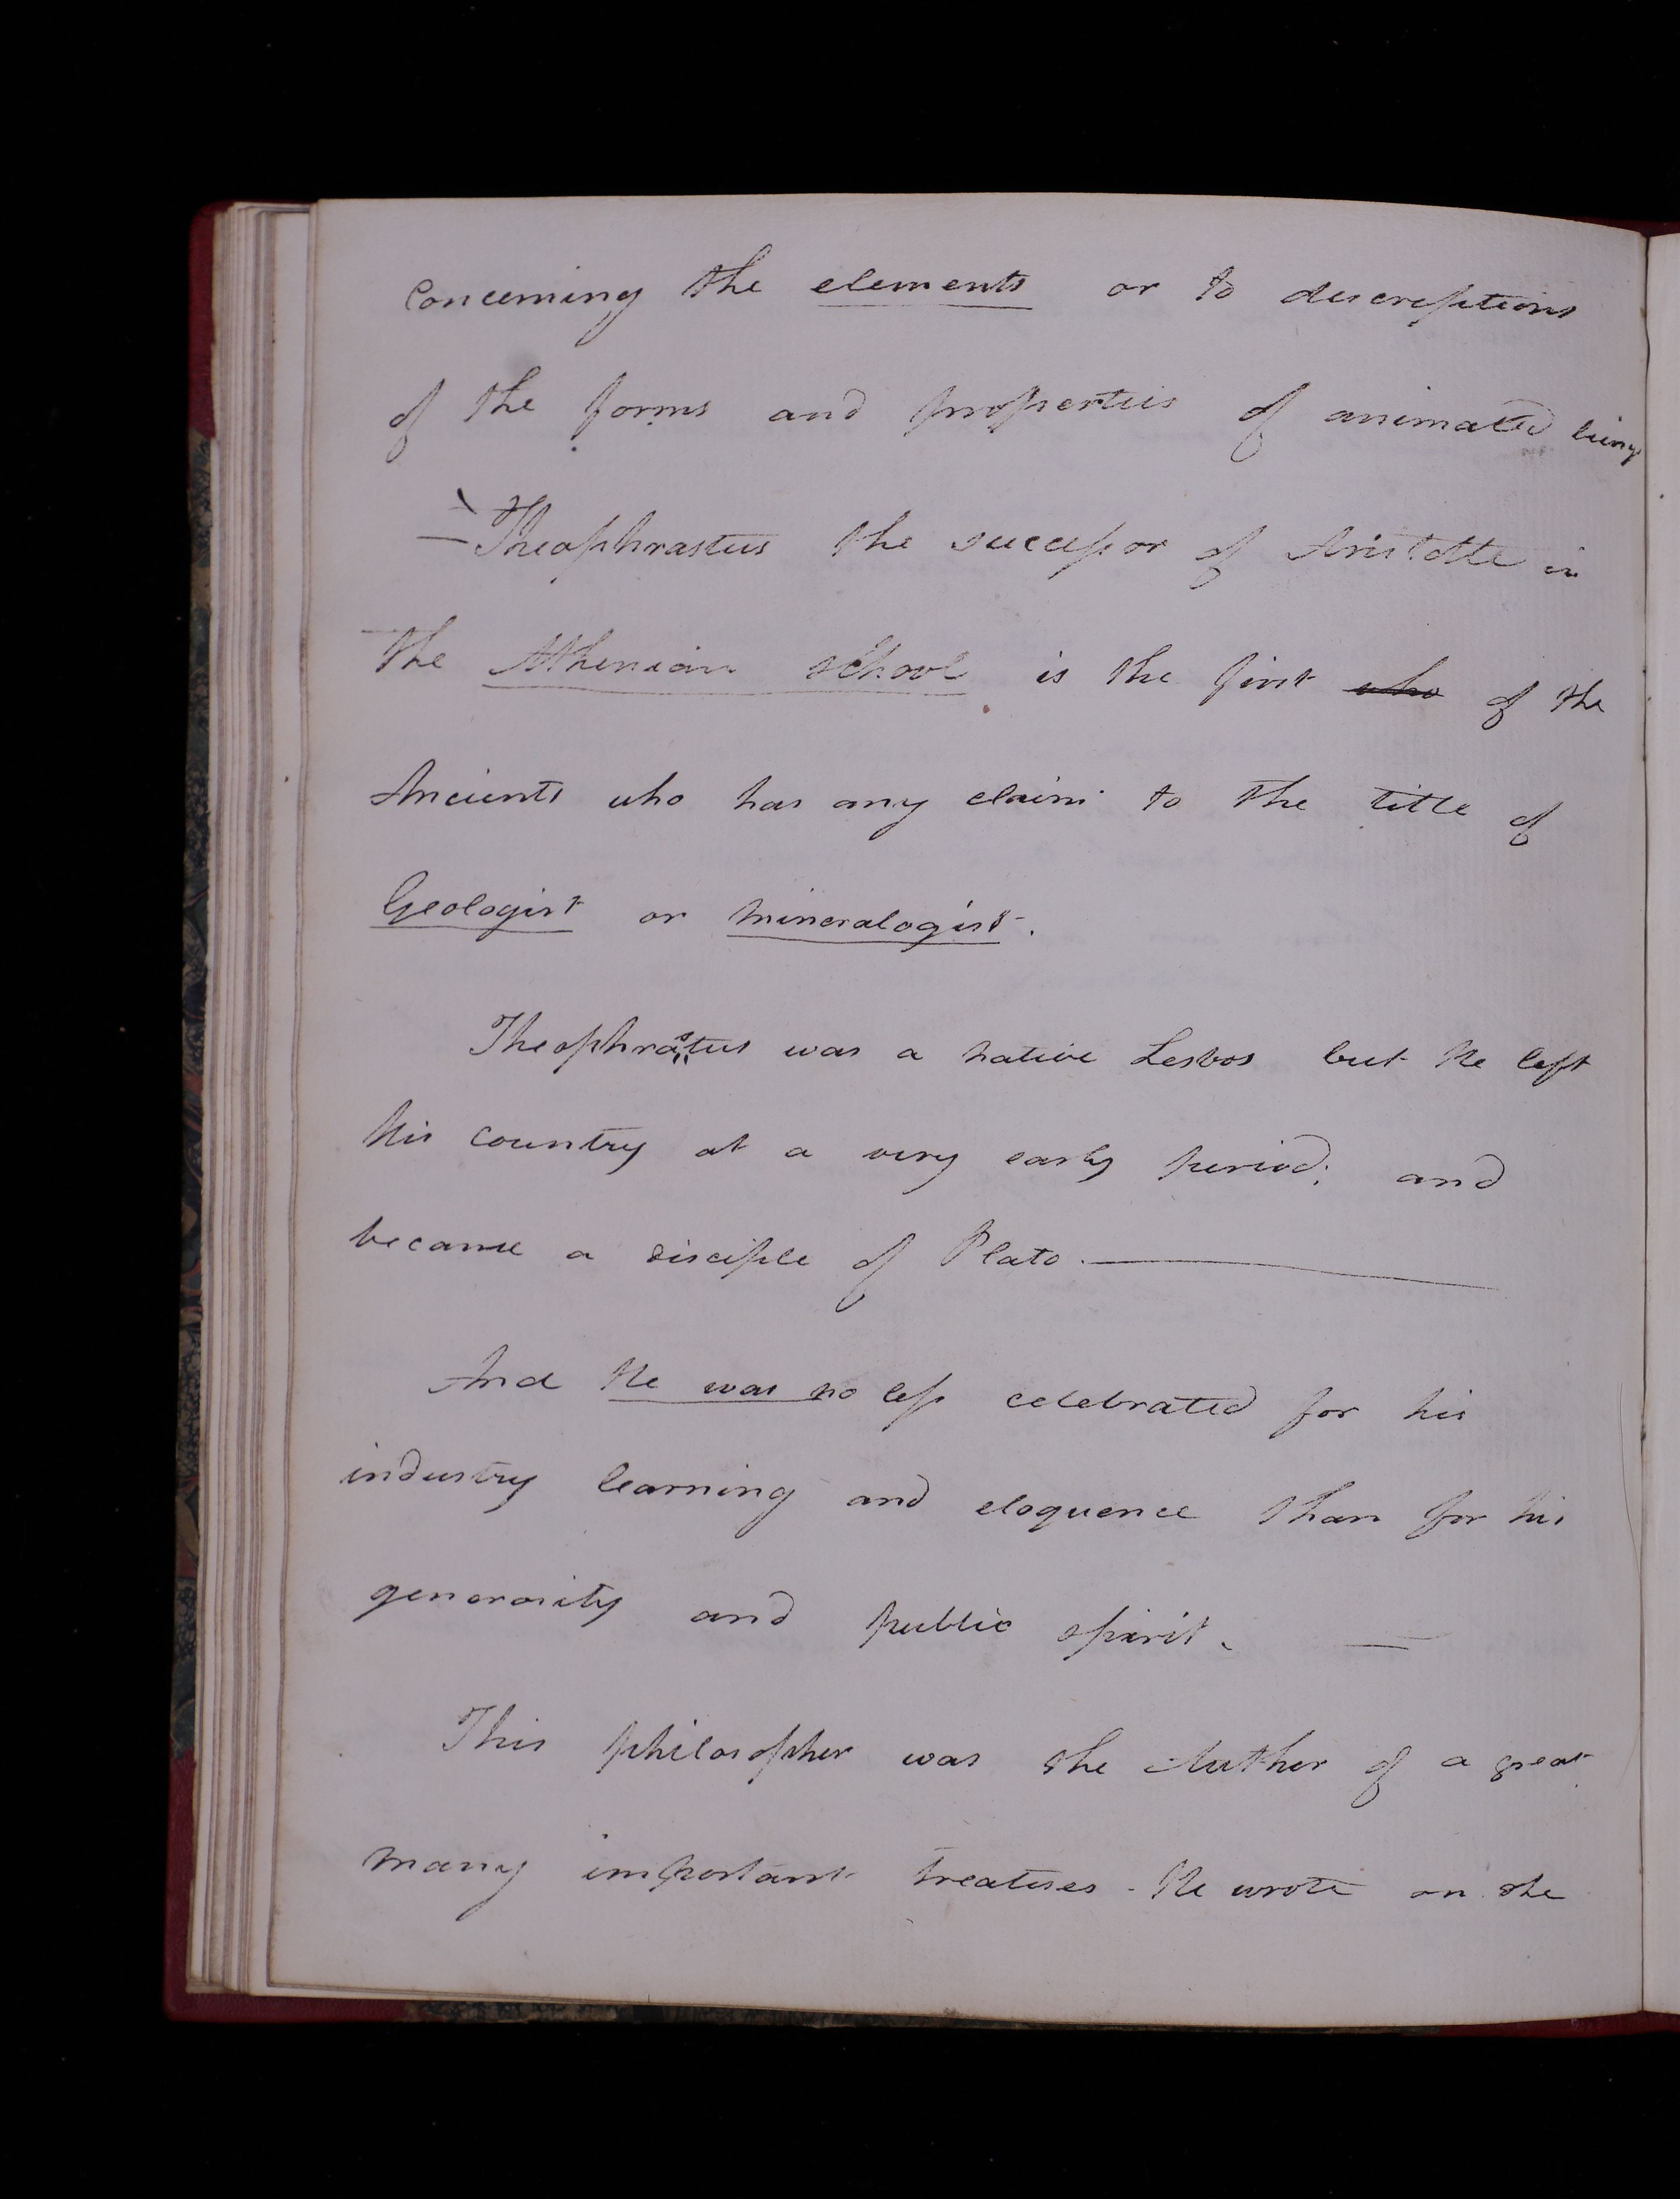 concerning the elements or to descriptions
of the forms and properties of animated beings
Theophrastus the successor of Aristotle in
the Athenian school is the first who of the
Ancients who has any claim to the title of
Geologist or mineralogist.
Theophrastus was a native Lesbos but he left
his country at a very early period; and
became a disciple of Plato.
And he was no less celebrated for his
industry learning and eloquence than for his
generosity and public spirit.
This philosopher was the Author of a great
many important treatises - He wrote on the